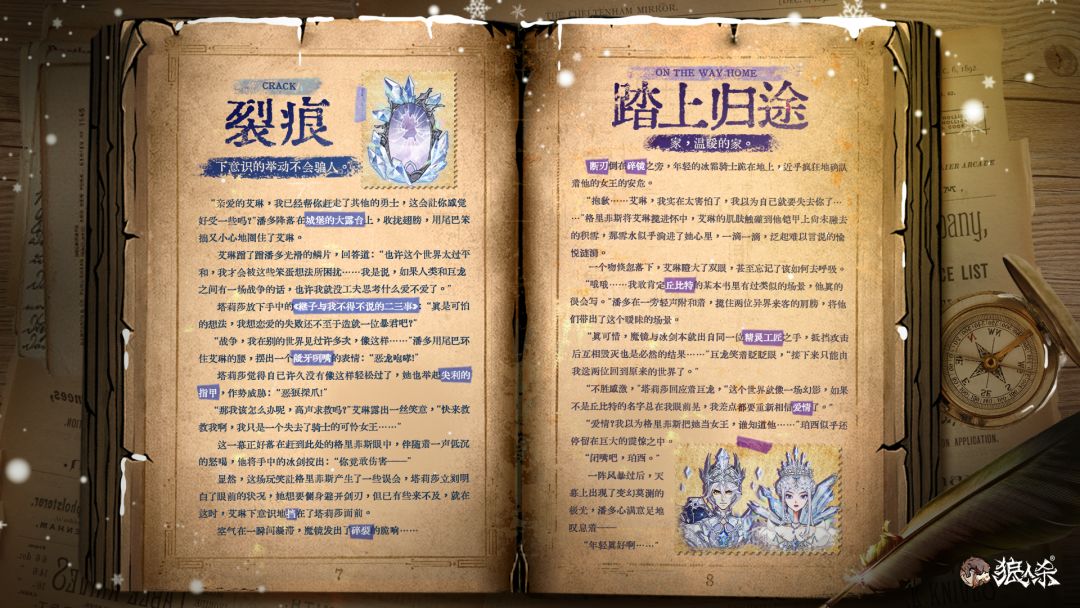 THE CHELTENHAM MIRROR.
CRACK
裂痕
下意识的举动不会骗人。
“亲爱的艾琳，我已经帮你赶走了其他的勇士，这会让你感觉
好受一些吗？”潘多降落在城堡的大露台上，收拢翅膀，用尾巴笨
拙又小心地圈住了艾琳。
艾琳蹭了蹭潘多光滑的鳞片，回答道：“也许这个世界太过平
和，我才会被这些笨蛋想法所困扰……我是说，如果人类和巨龙
之间有一场战争的话，也许我就没工夫思考什么爱不爱了。”
塔莉莎放下手中的《继子与我不得不说的二三事》：“真是可怕
的想法，我想恋爱的失败还不至于造就一位暴君吧？”
“战争，我在别的世界见过许多次，像这样……”潘多用尾巴环
住艾琳的腰，摆出一个龇牙咧嘴的表情：“恶龙咆哮！”
塔莉莎觉得自己许久没有像这样轻松过了，她也举起尖利的
指甲，作势威胁：“恶狠探爪！”
“那我该怎么办呢，高声求救吗？”艾琳露出一丝笑意，“快来救
救我啊，我只是一个失去了骑士的可怜女王……”
这一幕正好落在赶到此处的格里菲斯眼中，伴随着一声低沉
的怒喝，他将手中的冰剑掟出：“你竟敢伤害——”
显然，这场玩笑让格里菲斯产生了一些误会，塔莉莎立刻明
白了眼前的状况，她想要侧身避开剑刃，但已有些来不及，就在
这时，艾琳下意识地挡在了塔莉莎面前。
空气在一瞬间凝滞，魔镜发出了碎裂的脆响……
7
ON THE WAY HOME
踏上归途
家，温暖的家。
断刃倒在碎镜之旁，年轻的冰霜骑士跪在地上，近乎疯狂地确认
着他的女王的安危。
“抱歉……艾琳，我实在太害怕了，我以为自己就要失去你了…
…”格里菲斯将艾琳揽进怀中，艾琳的肌肤触碰到他铠甲上尚未融去
的积雪，那雪水似乎淌进了她心里，一滴一滴，泛起难以言说的愉
悦涟漪。
一个吻倏忽落下，艾琳瞪大了双眼，甚至忘记了该如何去呼吸。
“哦哦……我敢肯定丘比特的某本书里有过类似的场景，他真的
很会写。”潘多在一旁轻声附和着，揽住两位异界来客的肩膀，将他
们带出了这个暧昧的场景。
“真可惜，魔镜与冰剑本就出自同一位精灵工匠之手，抵挡攻击
后互相毁灭也是必然的结果……”巨龙笑着眨眨眼，“接下来只能由
我送两位回到原来的世界了。”
“不胜感激，”塔莉莎回应着巨龙，“这个世界就像一场幻影，如果
不是丘比特的名字总在我眼前晃，我差点都要重新相信爱情了。”
“爱情？我以为格里菲斯把她当女王，谁知道他……”珀西似乎还
停留在巨大的震惊之中。
“闭嘴吧，珀西。”
一阵风暴过后，天
幕上出现了变幻莫测的
极光，潘多心满意足地
叹息着——
“年轻真好啊……”
8
ICE LIST
ON APPLICATION.
狼人杀